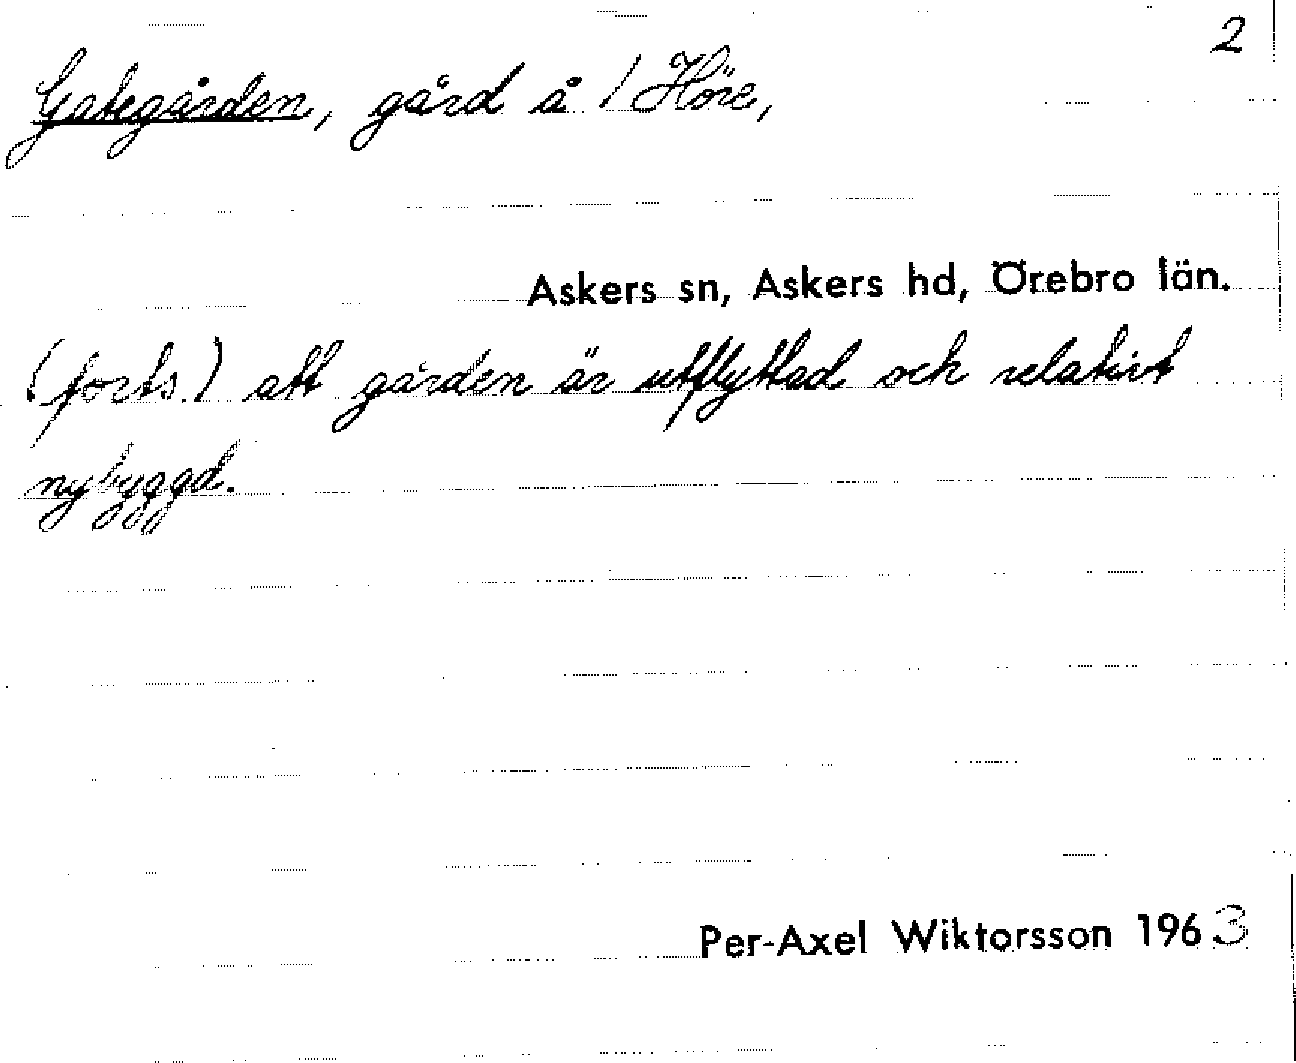 2
Gategården, gård å /Höre,
Askers sn, Askers hd, Örebro län.
(forts.) att gården är utflyttad och relativt
nybyggd.
Per-Axel Wiktorsson 1963